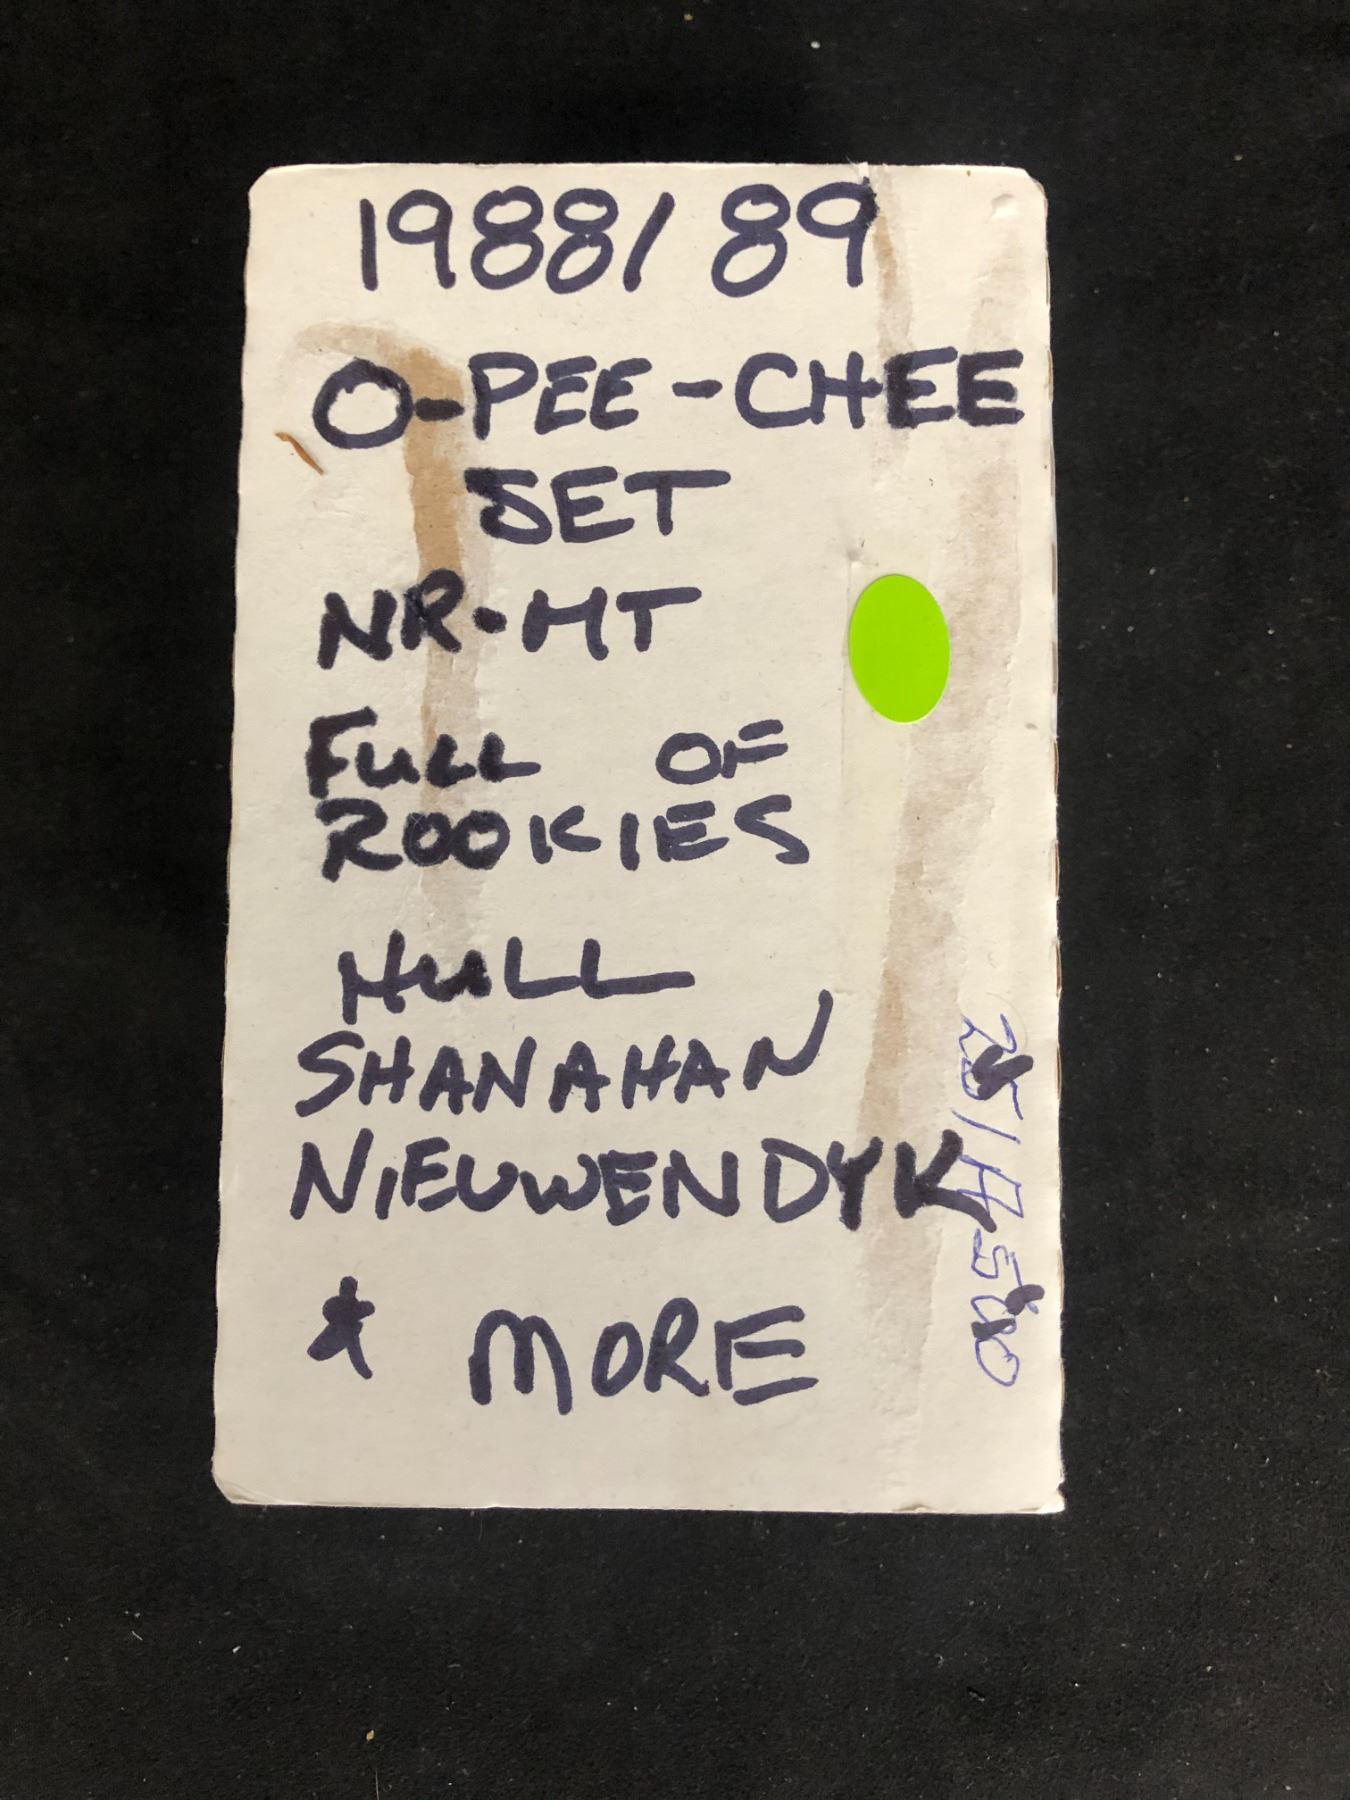 1988/89
O-PEE-CHEE
SET
NR-MT
FULL OF
ROOKIES
HULL
SHANAHAN
NIEUWENDYK
& MORE